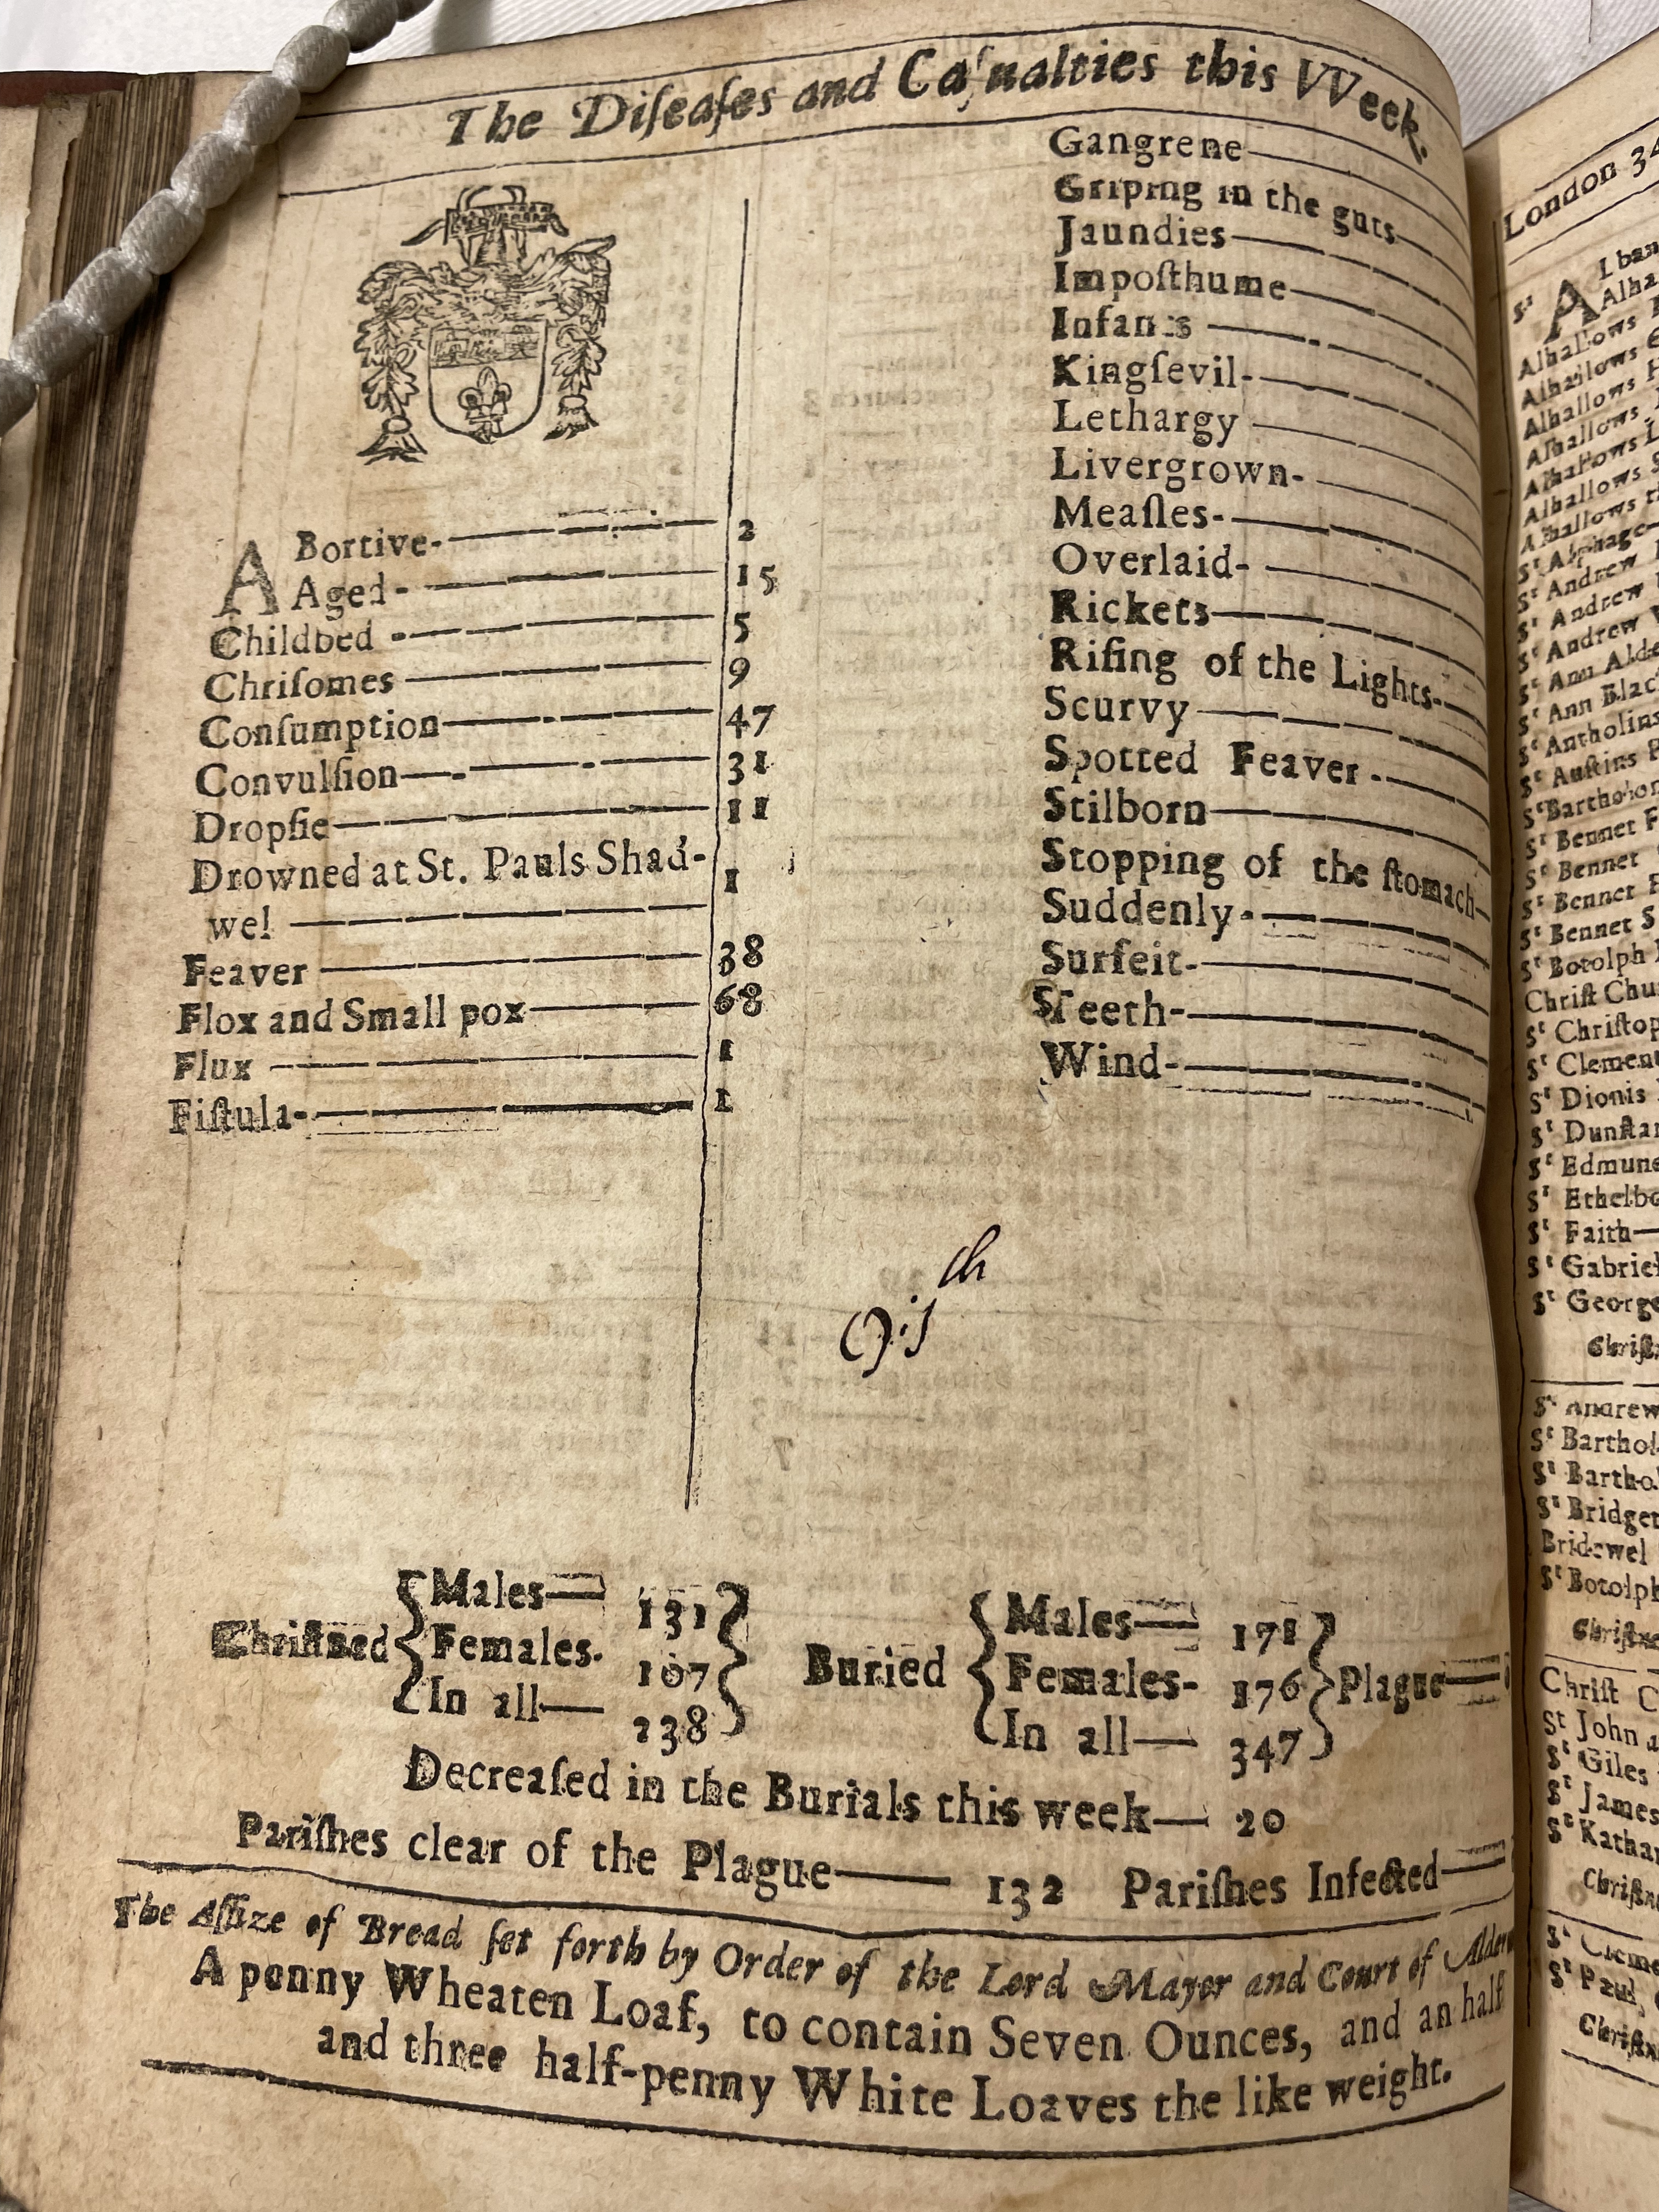 The Diſeaſes and Caſualties this VVeek.
ABortive- 2
Aged- 15
Childbed - 5
Chriſomes 9
Conſumption 47
Convulſion 31
Dropſie 11
Drowned at St. Pauls Shad-
wel 1
Feaver 38
Flox and Small pox 68
Flux 1
Fiſtula- 1
Gangrene
Griping in the guts
Jaundies
Impoſthume
Infants
Kingſevil-
Lethargy
Livergrown-
Meaſles-
Overlaid-
Rickets
Riſing of the Lights-
Scurvy
Spotted Feaver -
Stilborn
Stopping of the ſtomach
Suddenly-
Surfeit-
Teeth-
Wind-
Chriſtned { Males 131
Females. 107
In all 238 }
Buried { Males 171
Females- 176
In all 347 } Plague
Decreaſed in the Burials this week 20
Pariſhes clear of the Plague 132 Pariſhes Infected
The Aſſize of Bread ſet forth by Order of the Lord Mayor and Court of
A penny Wheaten Loaf, to contain Seven Ounces, and an half
and three half-penny White Loaves the like weight.
London 34
Sᵗ A
Alhallows
Alhallows
Alhallows
Alhallows
Alhallows
Alhallows
Alhallows
Sᵗ Alphage
Sᵗ Andrew
Sᵗ Andrew
Sᵗ Andrew
Sᵗ Ann Alde
Sᵗ Ann Blac
Sᵗ Antholins
Sᵗ Auſtins
Sᵗ Barthol
Sᵗ Bennet F
Sᵗ Bennet
Sᵗ Bennet
Sᵗ Bennet S
Sᵗ Botolph
Chriſt Chu
Sᵗ Chriſtop
Sᵗ Clement
Sᵗ Dionis
Sᵗ Dunſtan
Sᵗ Edmund
Sᵗ Ethelbo
Sᵗ Faith
Sᵗ Gabriel
Sᵗ George
Sᵗ Andrew
Sᵗ Barthol
Sᵗ Bartho
Sᵗ Bridget
Bridewel
Sᵗ Botolph
Chriſt C
St John a
Sᵗ Giles
Sᵗ James
Sᵗ Kathar
Sᵗ Cleme
Sᵗ Paul,